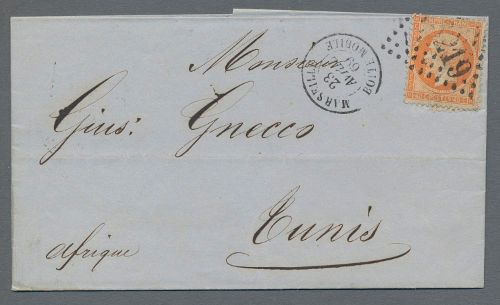 Monsieur
Gius: Gnecco
Tunis
Afrique
MARSEILLE
BOITE MOBILE
23
AVRIL
69
2219